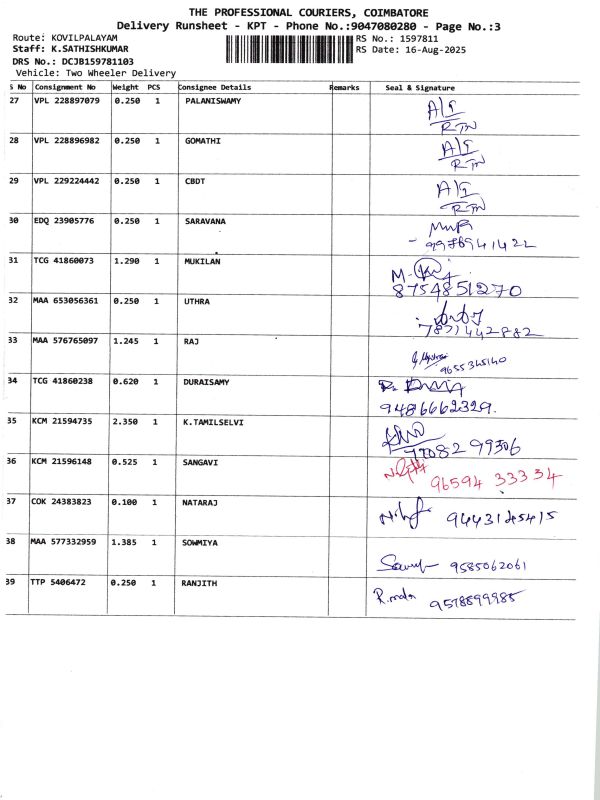 THE PROFESSIONAL COURIERS, COIMBATORE
Delivery Runsheet - KPT - Phone No.:9047080280 - Page No.:3
Route: KOVILPALAYAM RS No.: 1597811
Staff: K.SATHISHKUMAR RS Date: 16-Aug-2025
DRS No.: DCJB159781103
Vehicle: Two Wheeler Delivery
S No Consignment No Weight PCS Consignee Details Remarks Seal & Signature
27 VPL 228897079 0.250 1 PALANISWAMY A/S
RTN
28 VPL 228896982 0.250 1 GOMATHI A/S
RTN
29 VPL 229224442 0.250 1 CBDT A/S
RTN
30 EDQ 23905776 0.250 1 SARAVANA
9976941422
31 TCG 41860073 1.290 1 MUKILAN
8754851270
32 MAA 653056361 0.250 1 UTHRA
7871442882
33 MAA 576765097 1.245 1 RAJ
9655345140
34 TCG 41860238 0.620 1 DURAISAMY
9486662329.
35 KCM 21594735 2.350 1 K.TAMILSELVI
77082 99306
36 KCM 21596148 0.525 1 SANGAVI 96594 33334
37 COK 24383823 0.100 1 NATARAJ 9443145415
38 MAA 577332959 1.385 1 SOWMIYA 9585062061
39 TTP 5406472 0.250 1 RANJITH 9578599985